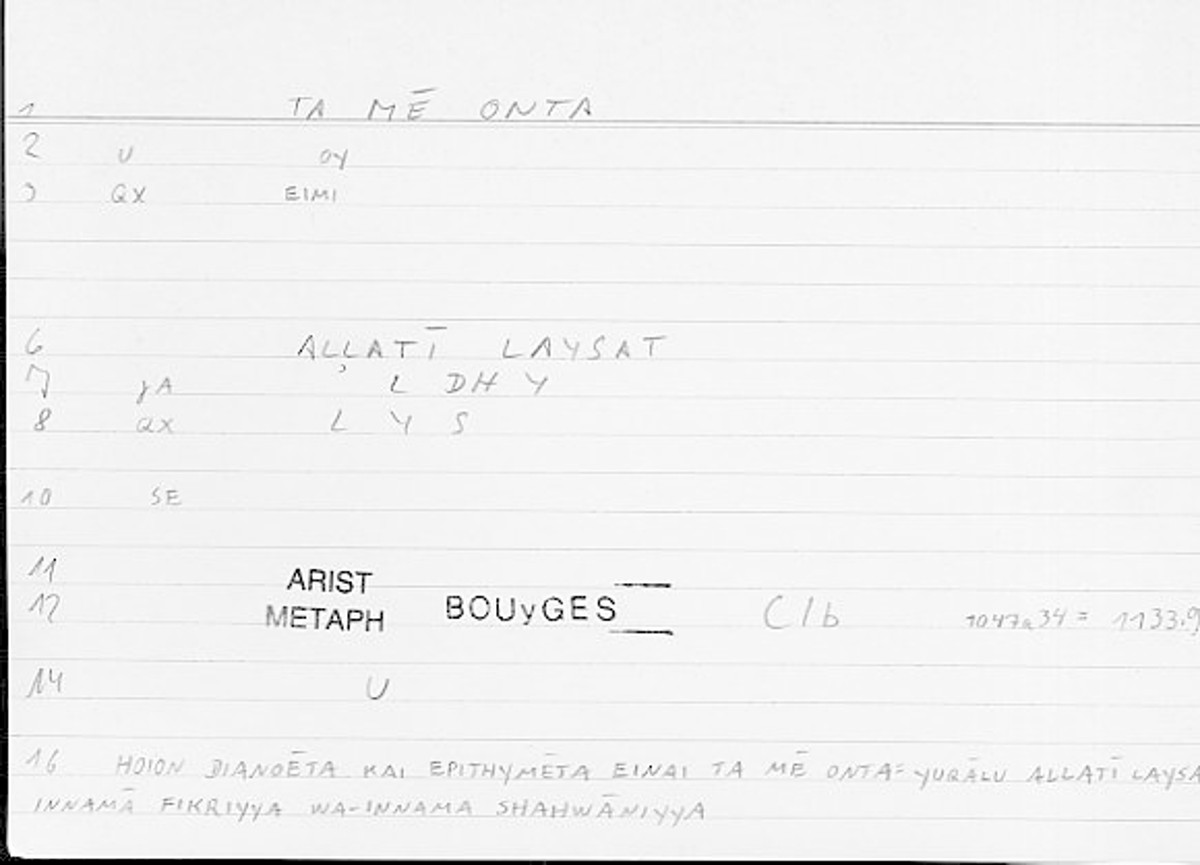 1 TA MĒ ONTA
2 U OY
3 QX EIMI
6 ALLATĪ LAYSAT
7 L DHY
8 QX LYS
10 SE
11 ARIST
12 METAPH BOUyGES C/b 1047a34 = 1133.9
14 U
16 HOION DIANOĒTA KAI EPITHYMĒTA EINAI TA MĒ ONTA = YUQĀLU ALLATĪ LAYSA
INNAMĀ FIKRIYYA WA-INNAMA SHAHWĀNIYYA